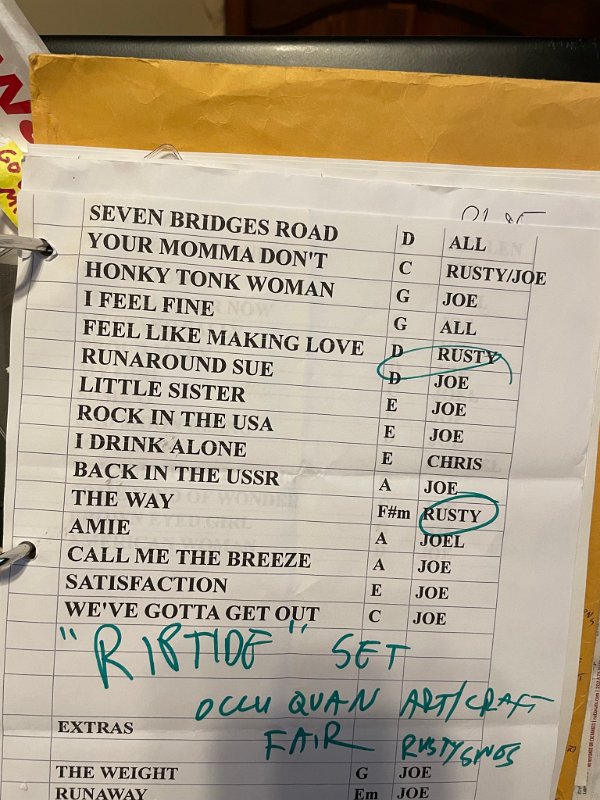 SEVEN BRIDGES ROAD D ALL
YOUR MOMMA DON'T C RUSTY/JOE
HONKY TONK WOMAN G JOE
I FEEL FINE G ALL
FEEL LIKE MAKING LOVE D RUSTY
RUNAROUND SUE D JOE
LITTLE SISTER E JOE
ROCK IN THE USA E JOE
I DRINK ALONE E CHRIS
BACK IN THE USSR A JOE
THE WAY F#m RUSTY
AMIE A JOEL
CALL ME THE BREEZE A JOE
SATISFACTION E JOE
WE'VE GOTTA GET OUT C JOE
"RIPTIDE" SET
OCCUQUAN ART/CRAFT
EXTRAS
FAIR RUSTY SINGS
THE WEIGHT G JOE
RUNAWAY Em JOE